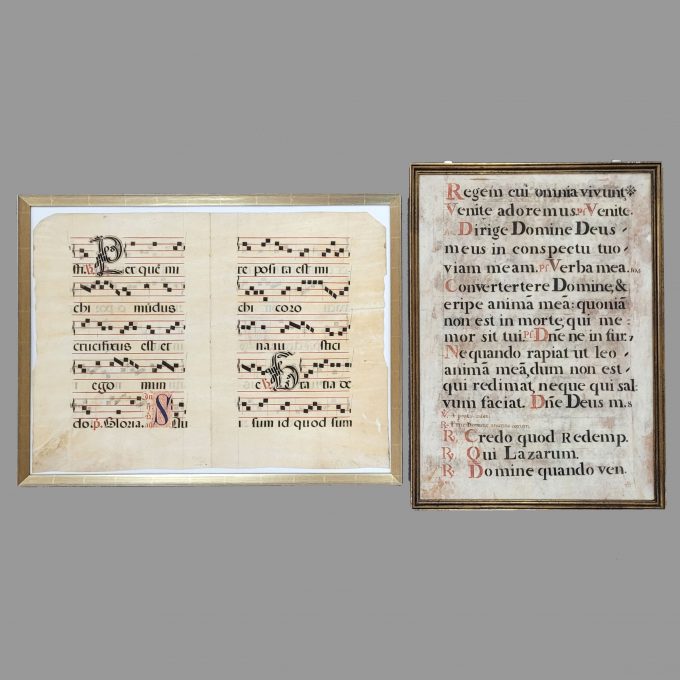 Pos
sti. ℟. Per quē mi
chi mūdus
crucifixus est et
ego mun
do. ℣. Gloria. Sui
re posi ta est mi
chi coro
na iu stici
e ℟. Gra tia de
i sum id quod sum
Regem cui omnia vivunt
Venite adoremus. Ps Venite.
Dirige Domine Deus
meus in conspectu tuo
viam meam. Ps Verba mea.
Convertertere Domine, &
eripe animā meā: quoniā
non est in morte, qui me
mor sit tui. Ps Dñe ne in fur.
Nequando rapiat ut leo
animā meā, dum non est
qui redimat, neque qui sal
vum faciat. Dñe Deus m.s
℟. Credo quod Redemp.
℟. Qui Lazarum.
℟. Domine quando ven.